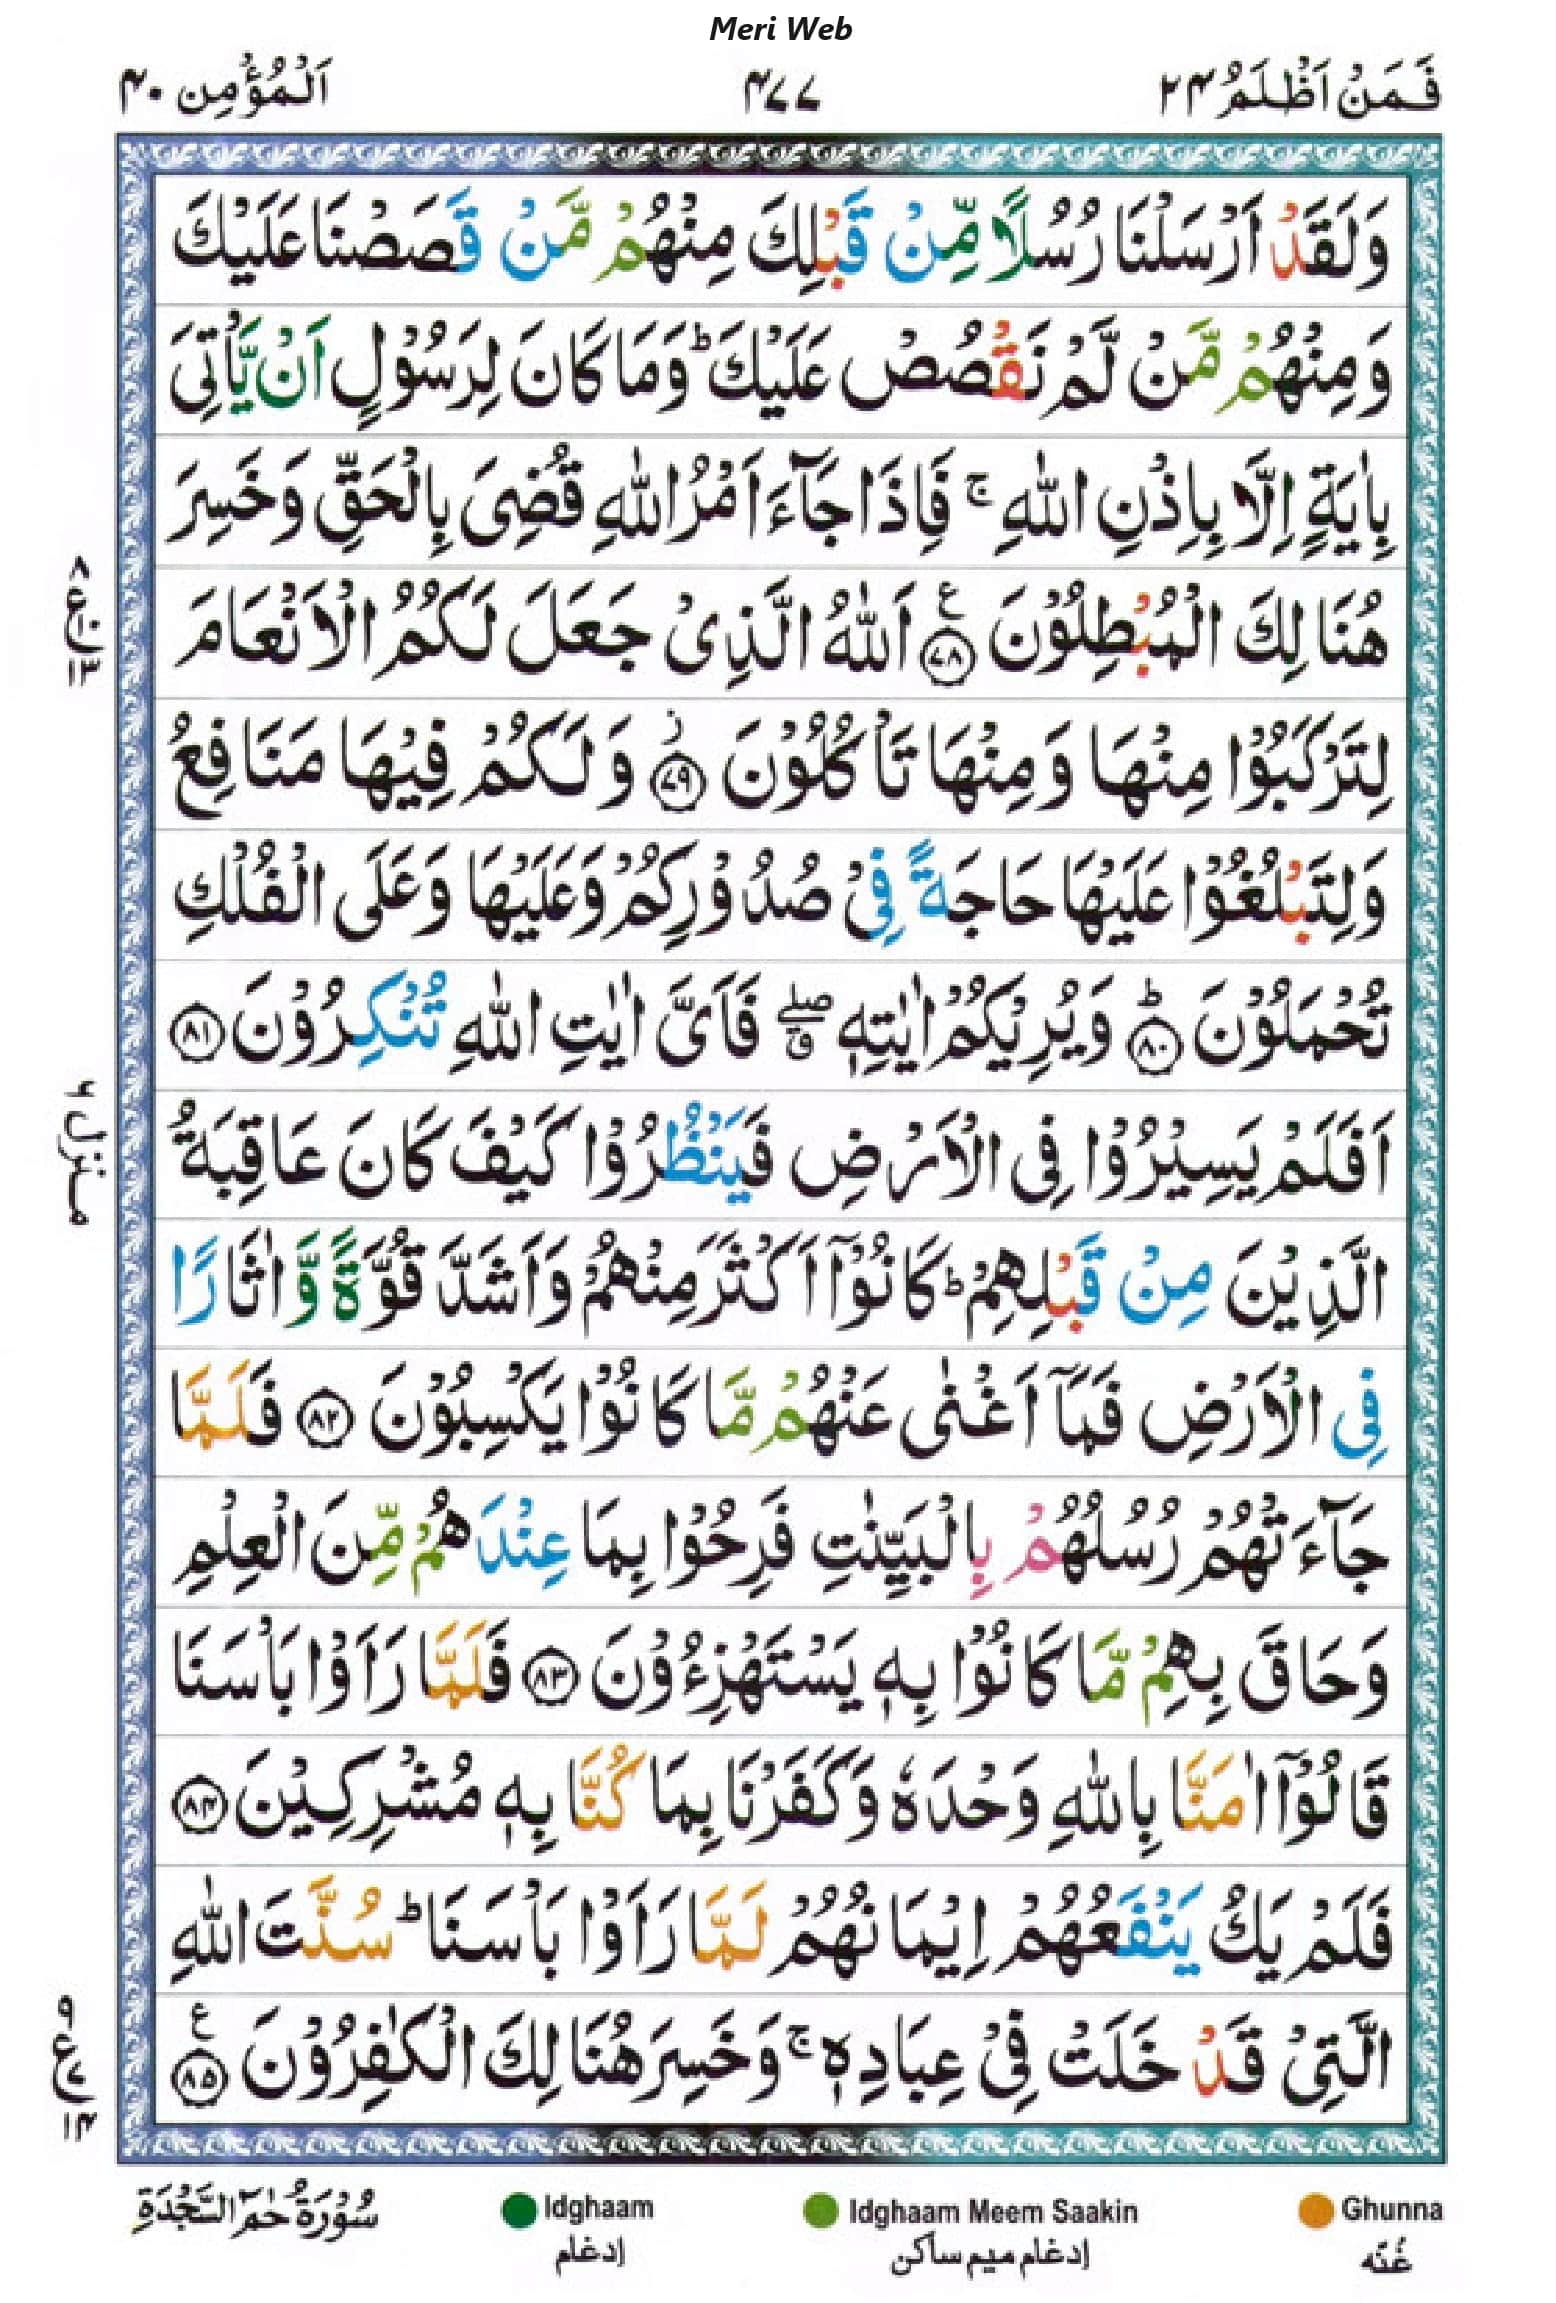 Meri Web
فَمَنْ اَظْلَمُ ٢٤
٤٧٧
اَلْمُؤْمِن ٤٠
وَلَقَدْ اَرْسَلْنَا رُسُلًا مِّنْ قَبْلِكَ مِنْهُمْ مَّنْ قَصَصْنَا عَلَيْكَ
وَمِنْهُمْ مَّنْ لَّمْ نَقْصُصْ عَلَيْكَ ؕ وَمَا كَانَ لِرَسُوْلٍ اَنْ يَّاْتِىَ
بِاٰيَةٍ اِلَّا بِاِذْنِ اللّٰهِ ۚ فَاِذَا جَآءَ اَمْرُ اللّٰهِ قُضِىَ بِالْحَقِّ وَخَسِرَ
هُنَالِكَ الْمُبْطِلُوْنَ ﴿٧٨﴾ ع اَللّٰهُ الَّذِىْ جَعَلَ لَكُمُ الْاَنْعَامَ
لِتَرْكَبُوْا مِنْهَا وَمِنْهَا تَاْكُلُوْنَ ﴿٧٩﴾ ز وَلَكُمْ فِيْهَا مَنَافِعُ
وَلِتَبْلُغُوْا عَلَيْهَا حَاجَةً فِىْ صُدُوْرِكُمْ وَعَلَيْهَا وَعَلَى الْفُلْكِ
تُحْمَلُوْنَ ﴿٨٠﴾ ؕ وَيُرِيْكُمْ اٰيٰتِهٖ ۖ ق فَاَىَّ اٰيٰتِ اللّٰهِ تُنْكِرُوْنَ ﴿٨١﴾
اَفَلَمْ يَسِيْرُوْا فِى الْاَرْضِ فَيَنْظُرُوْا كَيْفَ كَانَ عَاقِبَةُ
الَّذِيْنَ مِنْ قَبْلِهِمْ ؕ كَانُوْۤا اَكْثَرَ مِنْهُمْ وَاَشَدَّ قُوَّةً وَّاٰثَارًا
فِى الْاَرْضِ فَمَاۤ اَغْنٰى عَنْهُمْ مَّا كَانُوْا يَكْسِبُوْنَ ﴿٨٢﴾ فَلَمَّا
جَآءَتْهُمْ رُسُلُهُمْ بِالْبَيِّنٰتِ فَرِحُوْا بِمَا عِنْدَهُمْ مِّنَ الْعِلْمِ
وَحَاقَ بِهِمْ مَّا كَانُوْا بِهٖ يَسْتَهْزِءُوْنَ ﴿٨٣﴾ فَلَمَّا رَاَوْا بَاْسَنَا
قَالُوْۤا اٰمَنَّا بِاللّٰهِ وَحْدَهٗ وَكَفَرْنَا بِمَا كُنَّا بِهٖ مُشْرِكِيْنَ ﴿٨٤﴾
فَلَمْ يَكُ يَنْفَعُهُمْ اِيْمَانُهُمْ لَمَّا رَاَوْا بَاْسَنَا ؕ سُنَّتَ اللّٰهِ
الَّتِىْ قَدْ خَلَتْ فِىْ عِبَادِهٖ ۚ وَخَسِرَ هُنَالِكَ الْكٰفِرُوْنَ ﴿٨٥﴾ ع
٨ ع ١٣
منزل ٦
٩ ع ١٤
Ghunna
غُنّه
Idghaam Meem Saakin
إدغام ميم ساكن
Idghaam
إدغام
سُوْرَةُ حٰمٓ السَّجْدَةِ